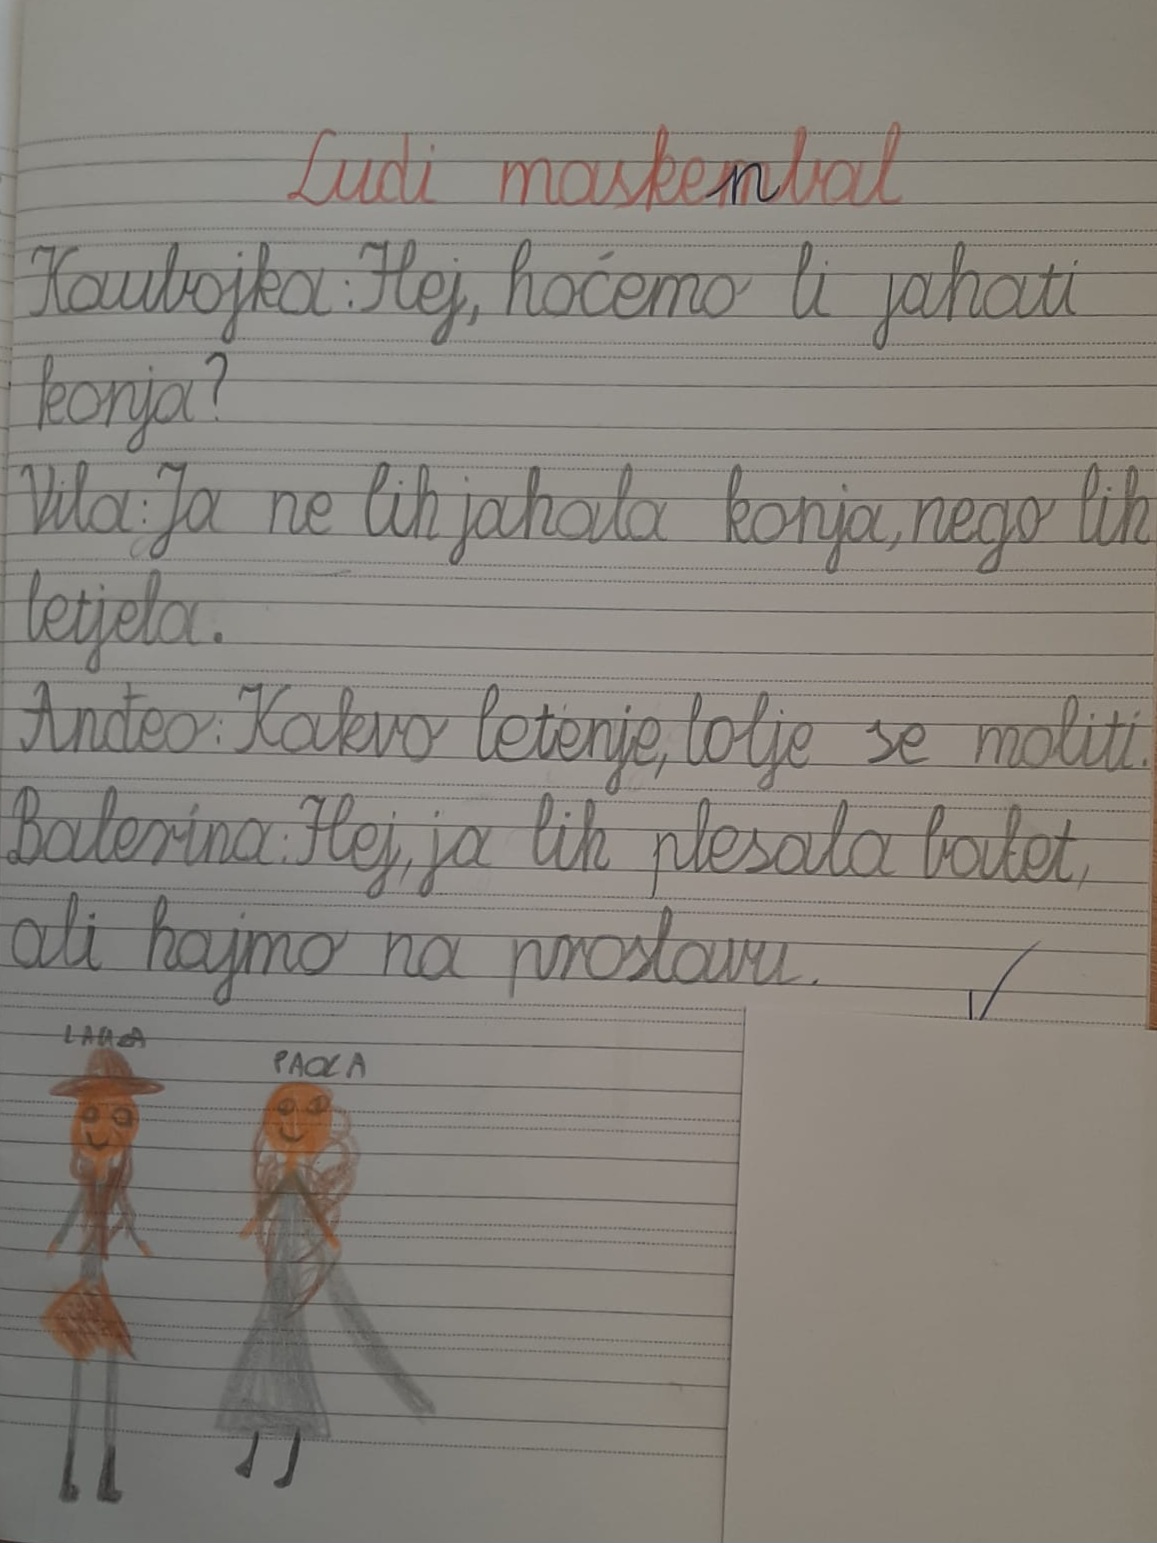 Ludi maskenbal
Kaubojka: Hej, hoćemo li jahati
konja?
Vila: Ja ne bih jahala konja, nego bih
letjela.
Anđeo: Kakvo letenje, bolje se moliti.
Balerina: Hej, ja bih plesala balet,
ali hajmo na proslavu.
PAOLA